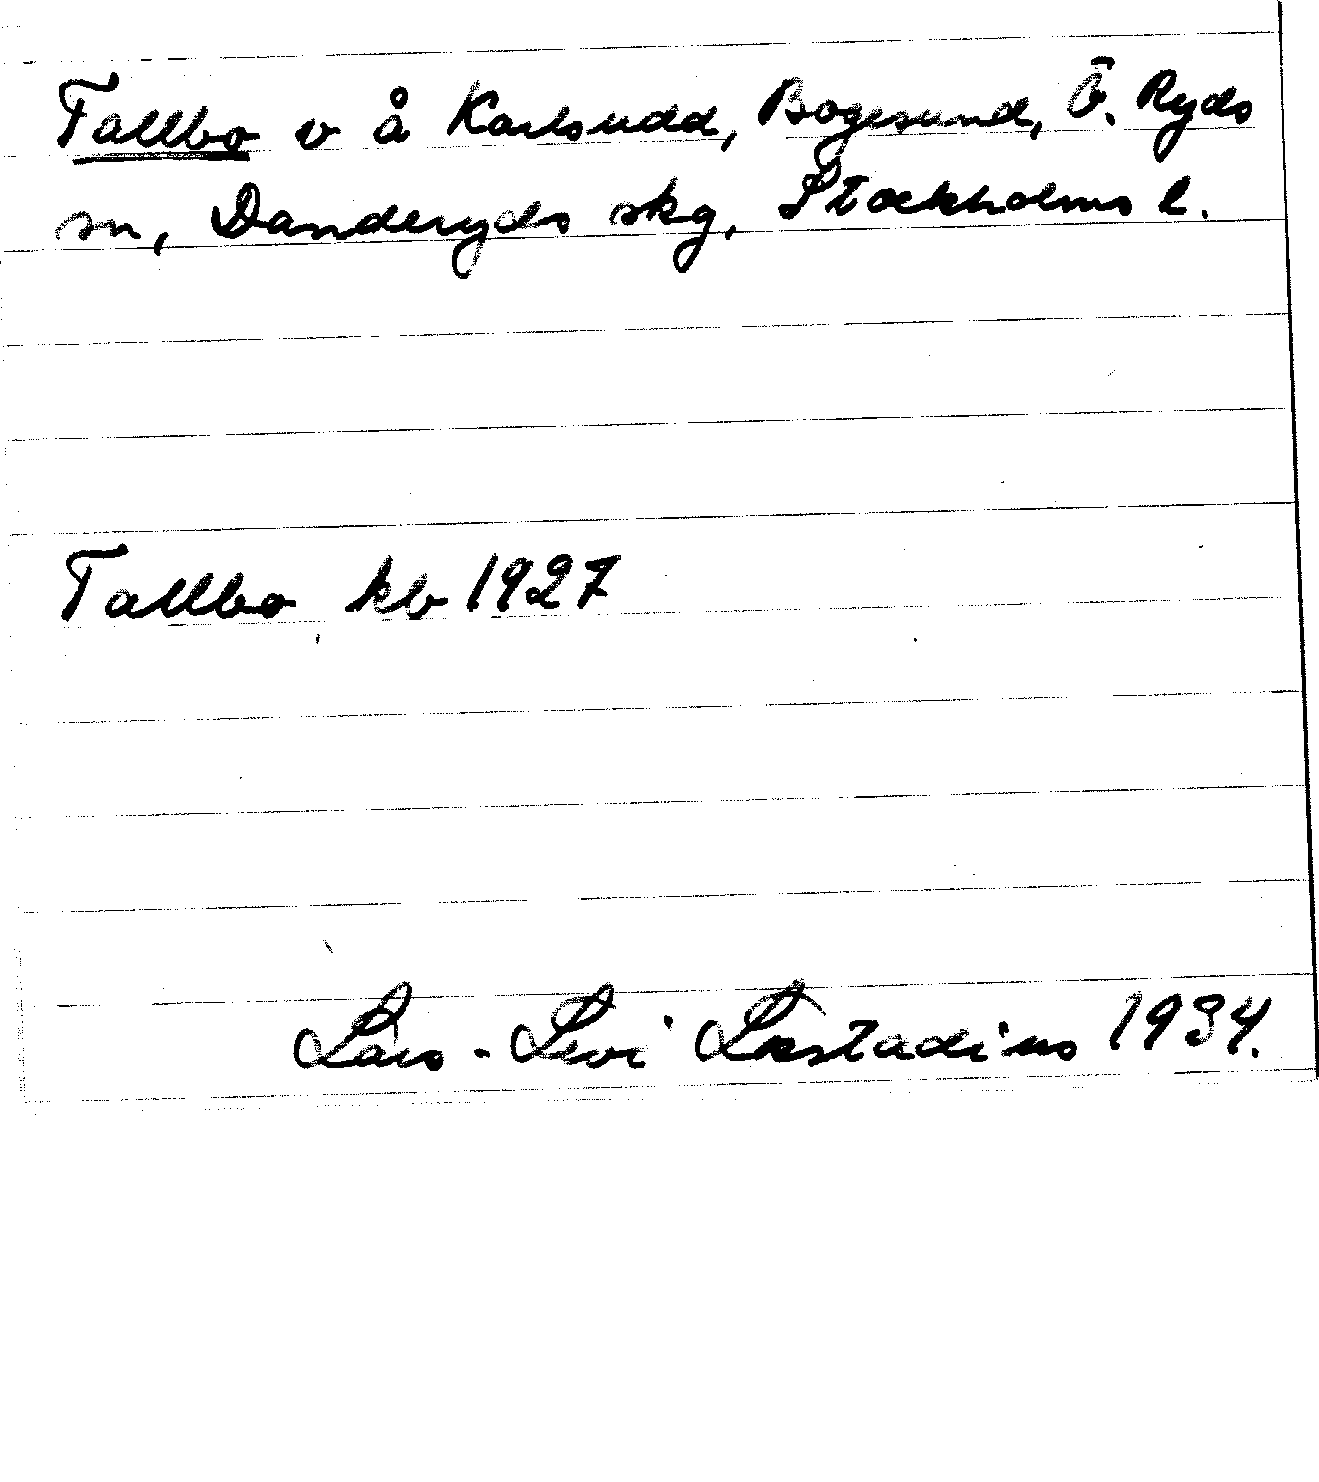 Tallbo v å Karlsudd, Bogesund, Ö. Ryds
sn, Danderyds skg, Stockholms l.
Tallbo kb 1927
Lars-Levi Læstadius 1934.